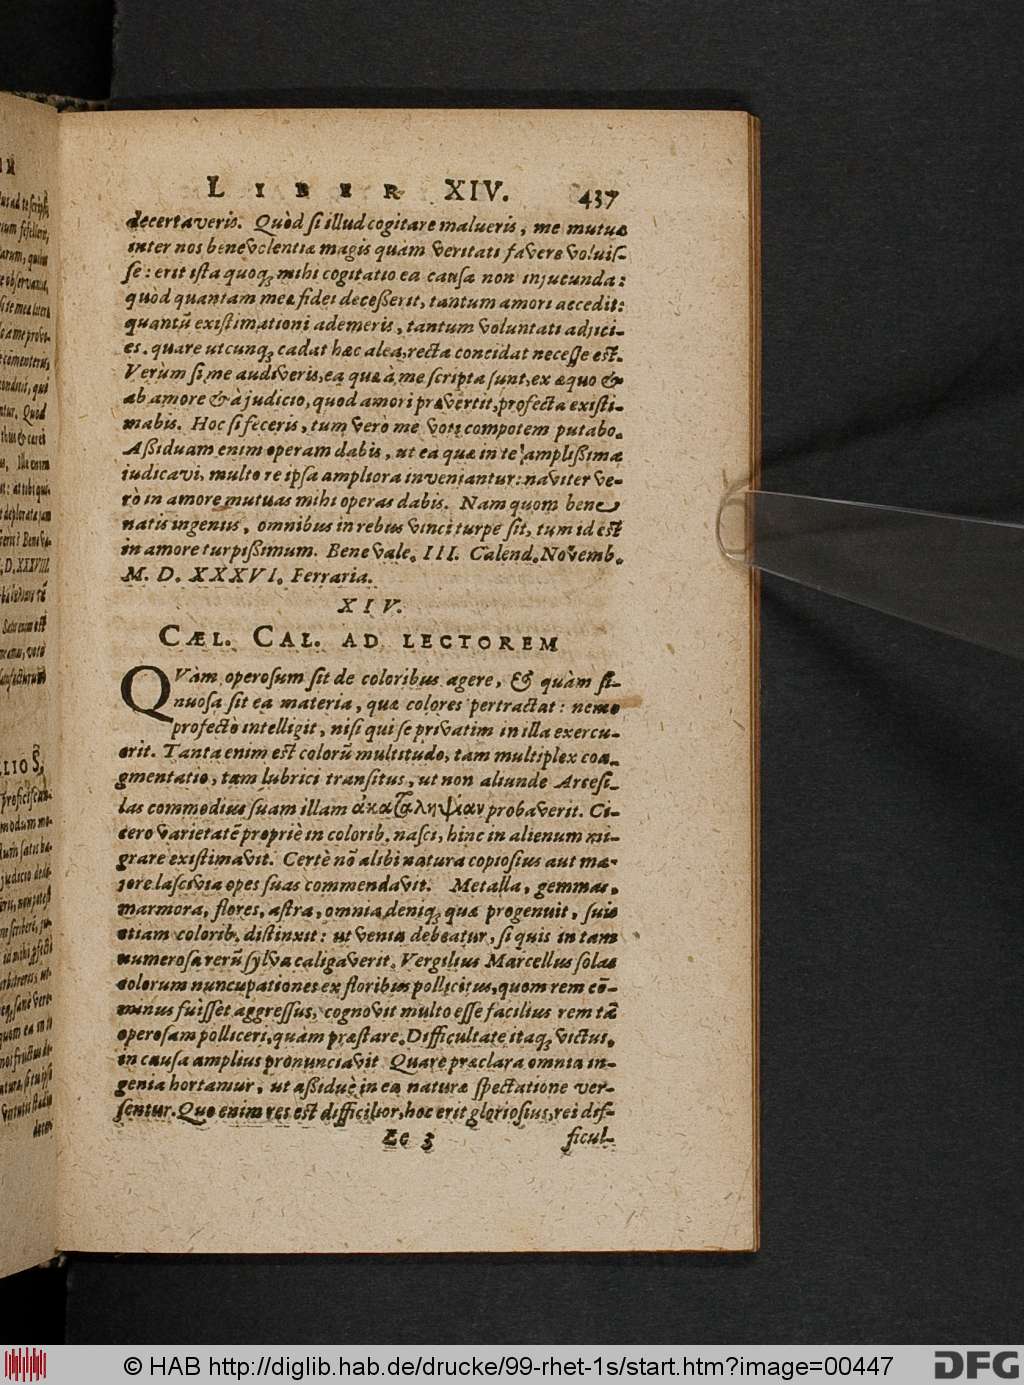 LIBER XIV. 437
decertaveris. Quòd si illud cogitare malueris, me mutuæ
inter nos benevolentiæ magis quàm veritati favere voluis-
se: erit ista quoq; mihi cogitatio ea causæ non injucunda:
quòd quantam meæ fidei deceßerit, tantum amori accedit:
quantũ existimationi ademeris, tantum voluntati adjici-
es. quare utcunq; cadat hæc alea, recta concidat necesse est.
Verùm si me audiveris, ea quæ à me scripta sunt, ex æquo &
ab amore & à judicio, quod amori prævertit, profecta existi-
mabis. Hoc si feceris, tum verò me voti compotem putabo.
Aßiduam enim operam dabis, ut ea quæ in te amplißima
iudicavi, multo re ipsa ampliora inveniantur: naviter ve-
rò in amore mutuas mihi operas dabis. Nam quom bene
natis ingeniis, omnibus in rebus vinci turpe sit, tum id est
in amore turpißimum. Bene vale. III. Calend. Novemb.
M. D. XXXVI. Ferraria.
XIV.
CÆL. CAL. AD LECTOREM
QVàm operosum sit de coloribus agere, & quàm si-
nuosa sit ea materia, quæ colores pertractat: nemo
profectò intelligit, nisi qui se privatim in illa exercu-
erit. Tanta enim est colorũ multitudo, tam multiplex coa-
gmentatio, tam lubrici transitus, ut non aliunde Arcesi-
las commodius suam illam ἀκαταληψίαν probaverit. Ci-
cero varietatẽ propriè in colorib. nasci, hinc in alienum mi-
grare existimavit. Certè nõ alibi natura copiosius aut ma-
jore lascivia opes suas commendavit. Metalla, gemmas,
marmora, flores, astra, omnia deniq; quæ progenuit, suis
etiam colorib. distinxit: ut venia debeatur, si quis in tam
numerosa rerũ sylva caligaverit. Vergilius Marcellus solas
colorum nuncupationes ex floribus pollicitus, quom rem cõ-
minus fuisset aggressus, cognovit multo esse facilius rem tã
operosam polliceri, quàm præstare. Difficultate itaq; victus,
in causa amplius pronunciavit Quare præclara omnia in-
genia hortamur, ut aßiduè in ea naturæ spectatione ver-
sentur. Quo enim res est difficilior, hoc erit gloriosius, rei dif-
Ee 3 ficul-
© HAB http://diglib.hab.de/drucke/99-rhet-1s/start.htm?image=00447 DFG